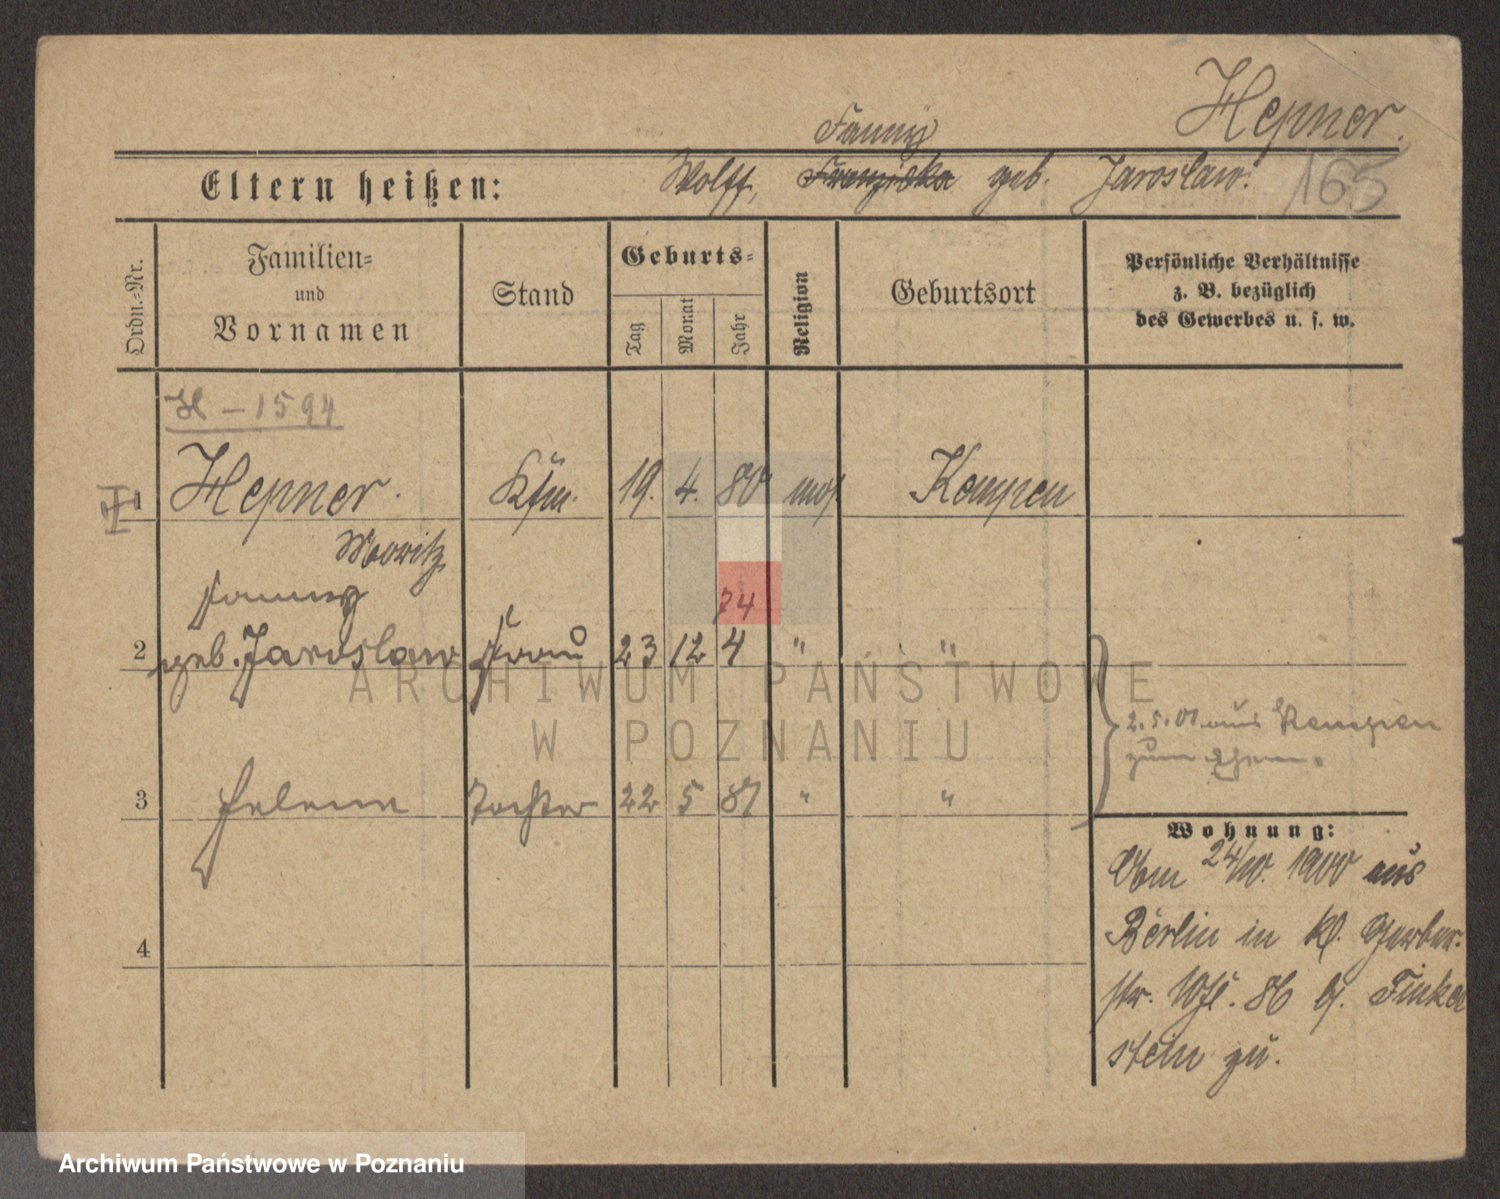 Hepner.
Fanny
Eltern heißen: Wolff, Franziska geb. Jaroslaw.
165
Ordn.-Nr.
Familien-
und
Vornamen
Stand
Geburts-
Tag
Monat
Jahr
Religion
Geburtsort
Persönliche Verhältnisse
z. B. bezüglich
des Gewerbes u. s. w.
H - 1594
1 Hepner. Kfm. 19. 4. 80 mos Kempen
Moritz
Fanny
74
2 geb. Jaroslaw Frau 23 12 4 " "
2.5.01 aus Kempen
zum Ehem.
3 Helene Tochter 22 5 87 " "
Wohnung:
Vom 24/10. 1900 aus
Berlin in kl. Gerber-
str. 86 b. Finkel
stein zu.
4
ARCHIWUM PAŃSTWOWE
W POZNANIU
Archiwum Państwowe w Poznaniu